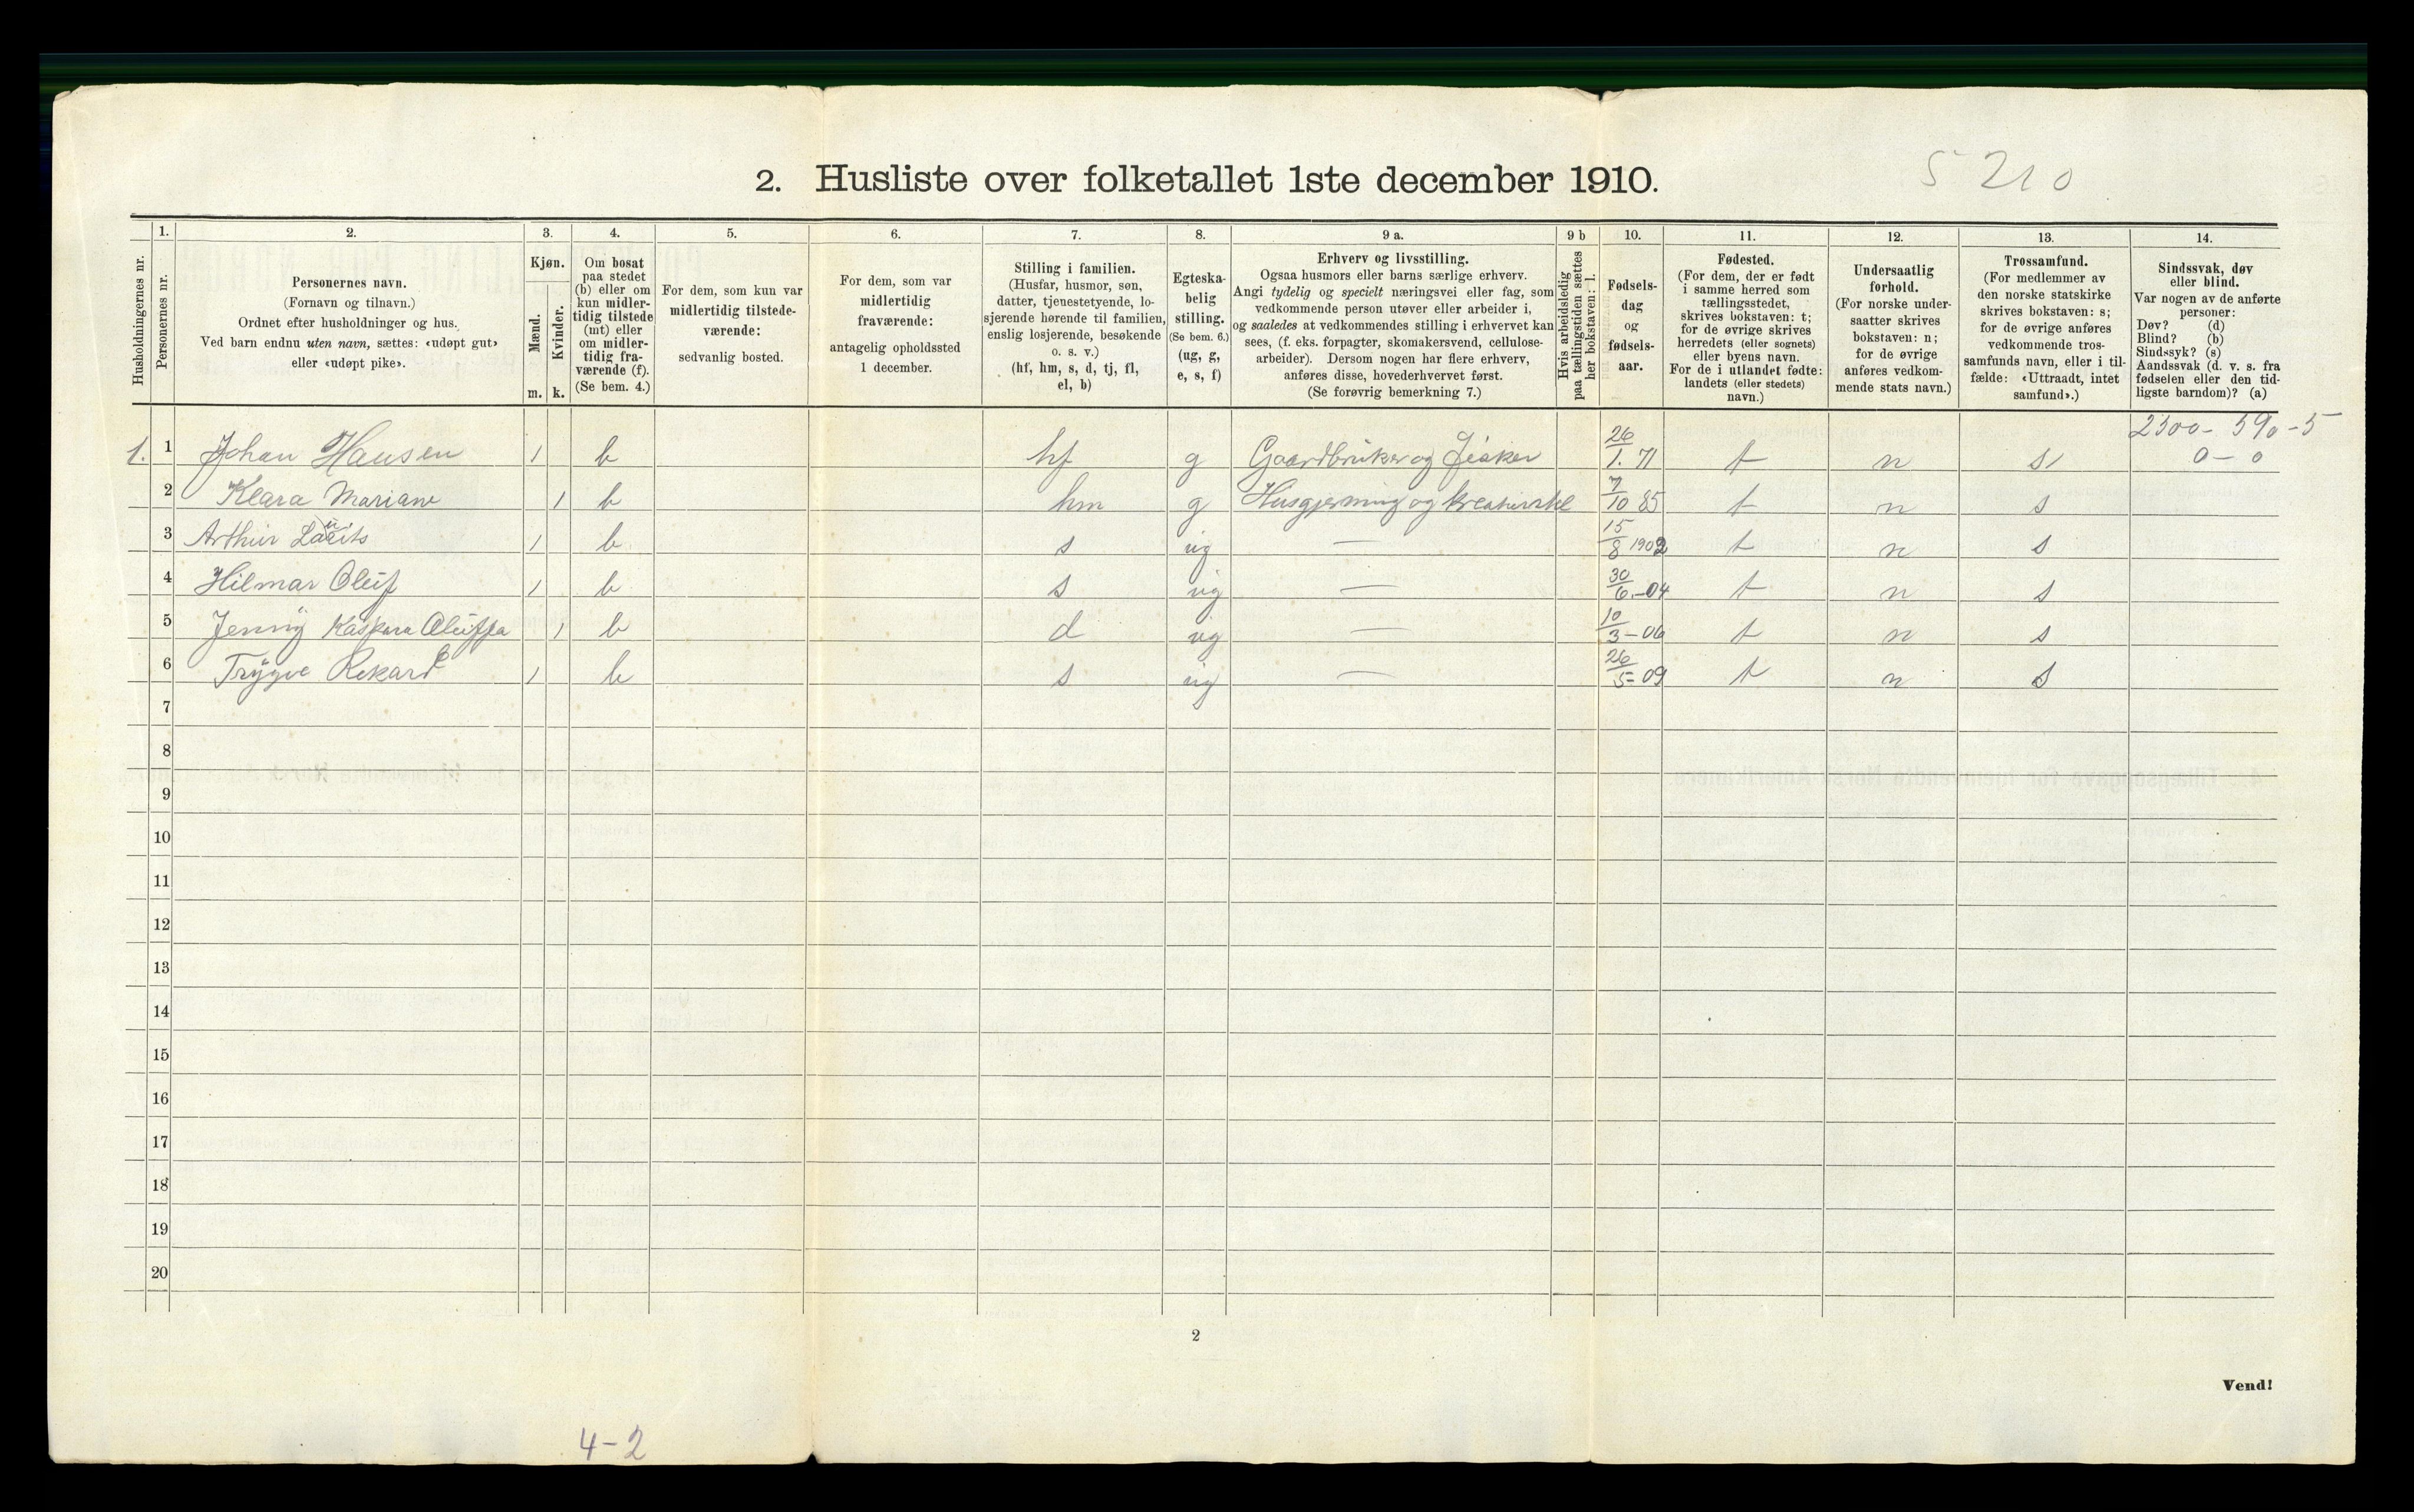 2. Husliste over folketallet 1ste december 1910.
5 210
Husholdningernes nr.
1.
Personernes nr.
2.
Personernes navn.
(Fornavn og tilnavn.)
Ordnet efter husholdninger og hus.
Ved barn endnu uten navn, sættes: «udøpt gut»
eller «udøpt pike».
3.
Kjøn.
Mænd.
Kvinder.
m.
k.
4.
Om bosat
paa stedet
(b) eller om
kun midler-
tidig tilstede
(mt) eller
om midler-
tidig fra-
værende (f).
(Se bem. 4.)
5.
For dem, som kun var
midlertidig tilstede-
værende:
sedvanlig bosted.
6.
For dem, som var
midlertidig
fraværende:
antagelig opholdssted
1 december.
7.
Stilling i familien.
(Husfar, husmor, søn,
datter, tjenestetyende, lo-
sjerende hørende til familien,
enslig losjerende, besøkende
o. s. v.)
(hf, hm, s, d, tj, fl,
el, b)
8.
Egteska-
belig
stilling.
(Se bem. 6.)
(ug, g,
e, s, f)
9 a.
Erhverv og livsstilling.
Ogsaa husmors eller barns særlige erhverv.
Angi tydelig og specielt næringsvei eller fag, som
vedkommende person utøver eller arbeider i,
og saaledes at vedkommendes stilling i erhvervet kan
sees, (f. eks. forpagter, skomakersvend, cellulose-
arbeider). Dersom nogen har flere erhverv,
anføres disse, hovederhvervet først.
(Se forøvrig bemerkning 7.)
9 b
Hvis arbeidsledig
paa tællingstiden sættes
her bokstaven: l.
10.
Fødsels-
dag
og
fødsels-
aar.
11.
Fødested.
(For dem, der er født
i samme herred som
tællingsstedet,
skrives bokstaven: t;
for de øvrige skrives
herredets (eller sognets)
eller byens navn.
For de i utlandet fødte:
landets (eller stedets)
navn.)
12.
Undersaatlig
forhold.
(For norske under-
saatter skrives
bokstaven: n;
for de øvrige
anføres vedkom-
mende stats navn.)
13.
Trossamfund.
(For medlemmer av
den norske statskirke
skrives bokstaven: s;
for de øvrige anføres
vedkommende tros-
samfunds navn, eller i til-
fælde: «Uttraadt, intet
samfund».)
14.
Sindssvak, døv
eller blind.
Var nogen av de anførte
personer:
Døv? (d)
Blind? (b)
Sindssyk? (s)
Aandssvak (d. v. s. fra
fødselen eller den tid-
ligste barndom)? (a)
2300 - 590 - 5
0 - 0
1. 1 Johan Hansen 1 b hf g Gaardbruker og Fisker 26/1. 71 t n s
2 Klara Mariane 1 b hm g Husgjerning og kreaturstel 7/10 85 t n s
3 Arthur Laurits 1 b s ug — 15/8 1902 t n s
4 Hilmar Oluf 1 b s ug — 30/6 -04 t n s
5 Jenny Kaspara Oluffa 1 b d ug — 10/3 -06 t n s
6 Trygve Rikard 1 b s ug — 26/5- 09 t n s
7
8
9
10
11
12
13
14
15
16
17
18
19
20
2
Vend!
4-2